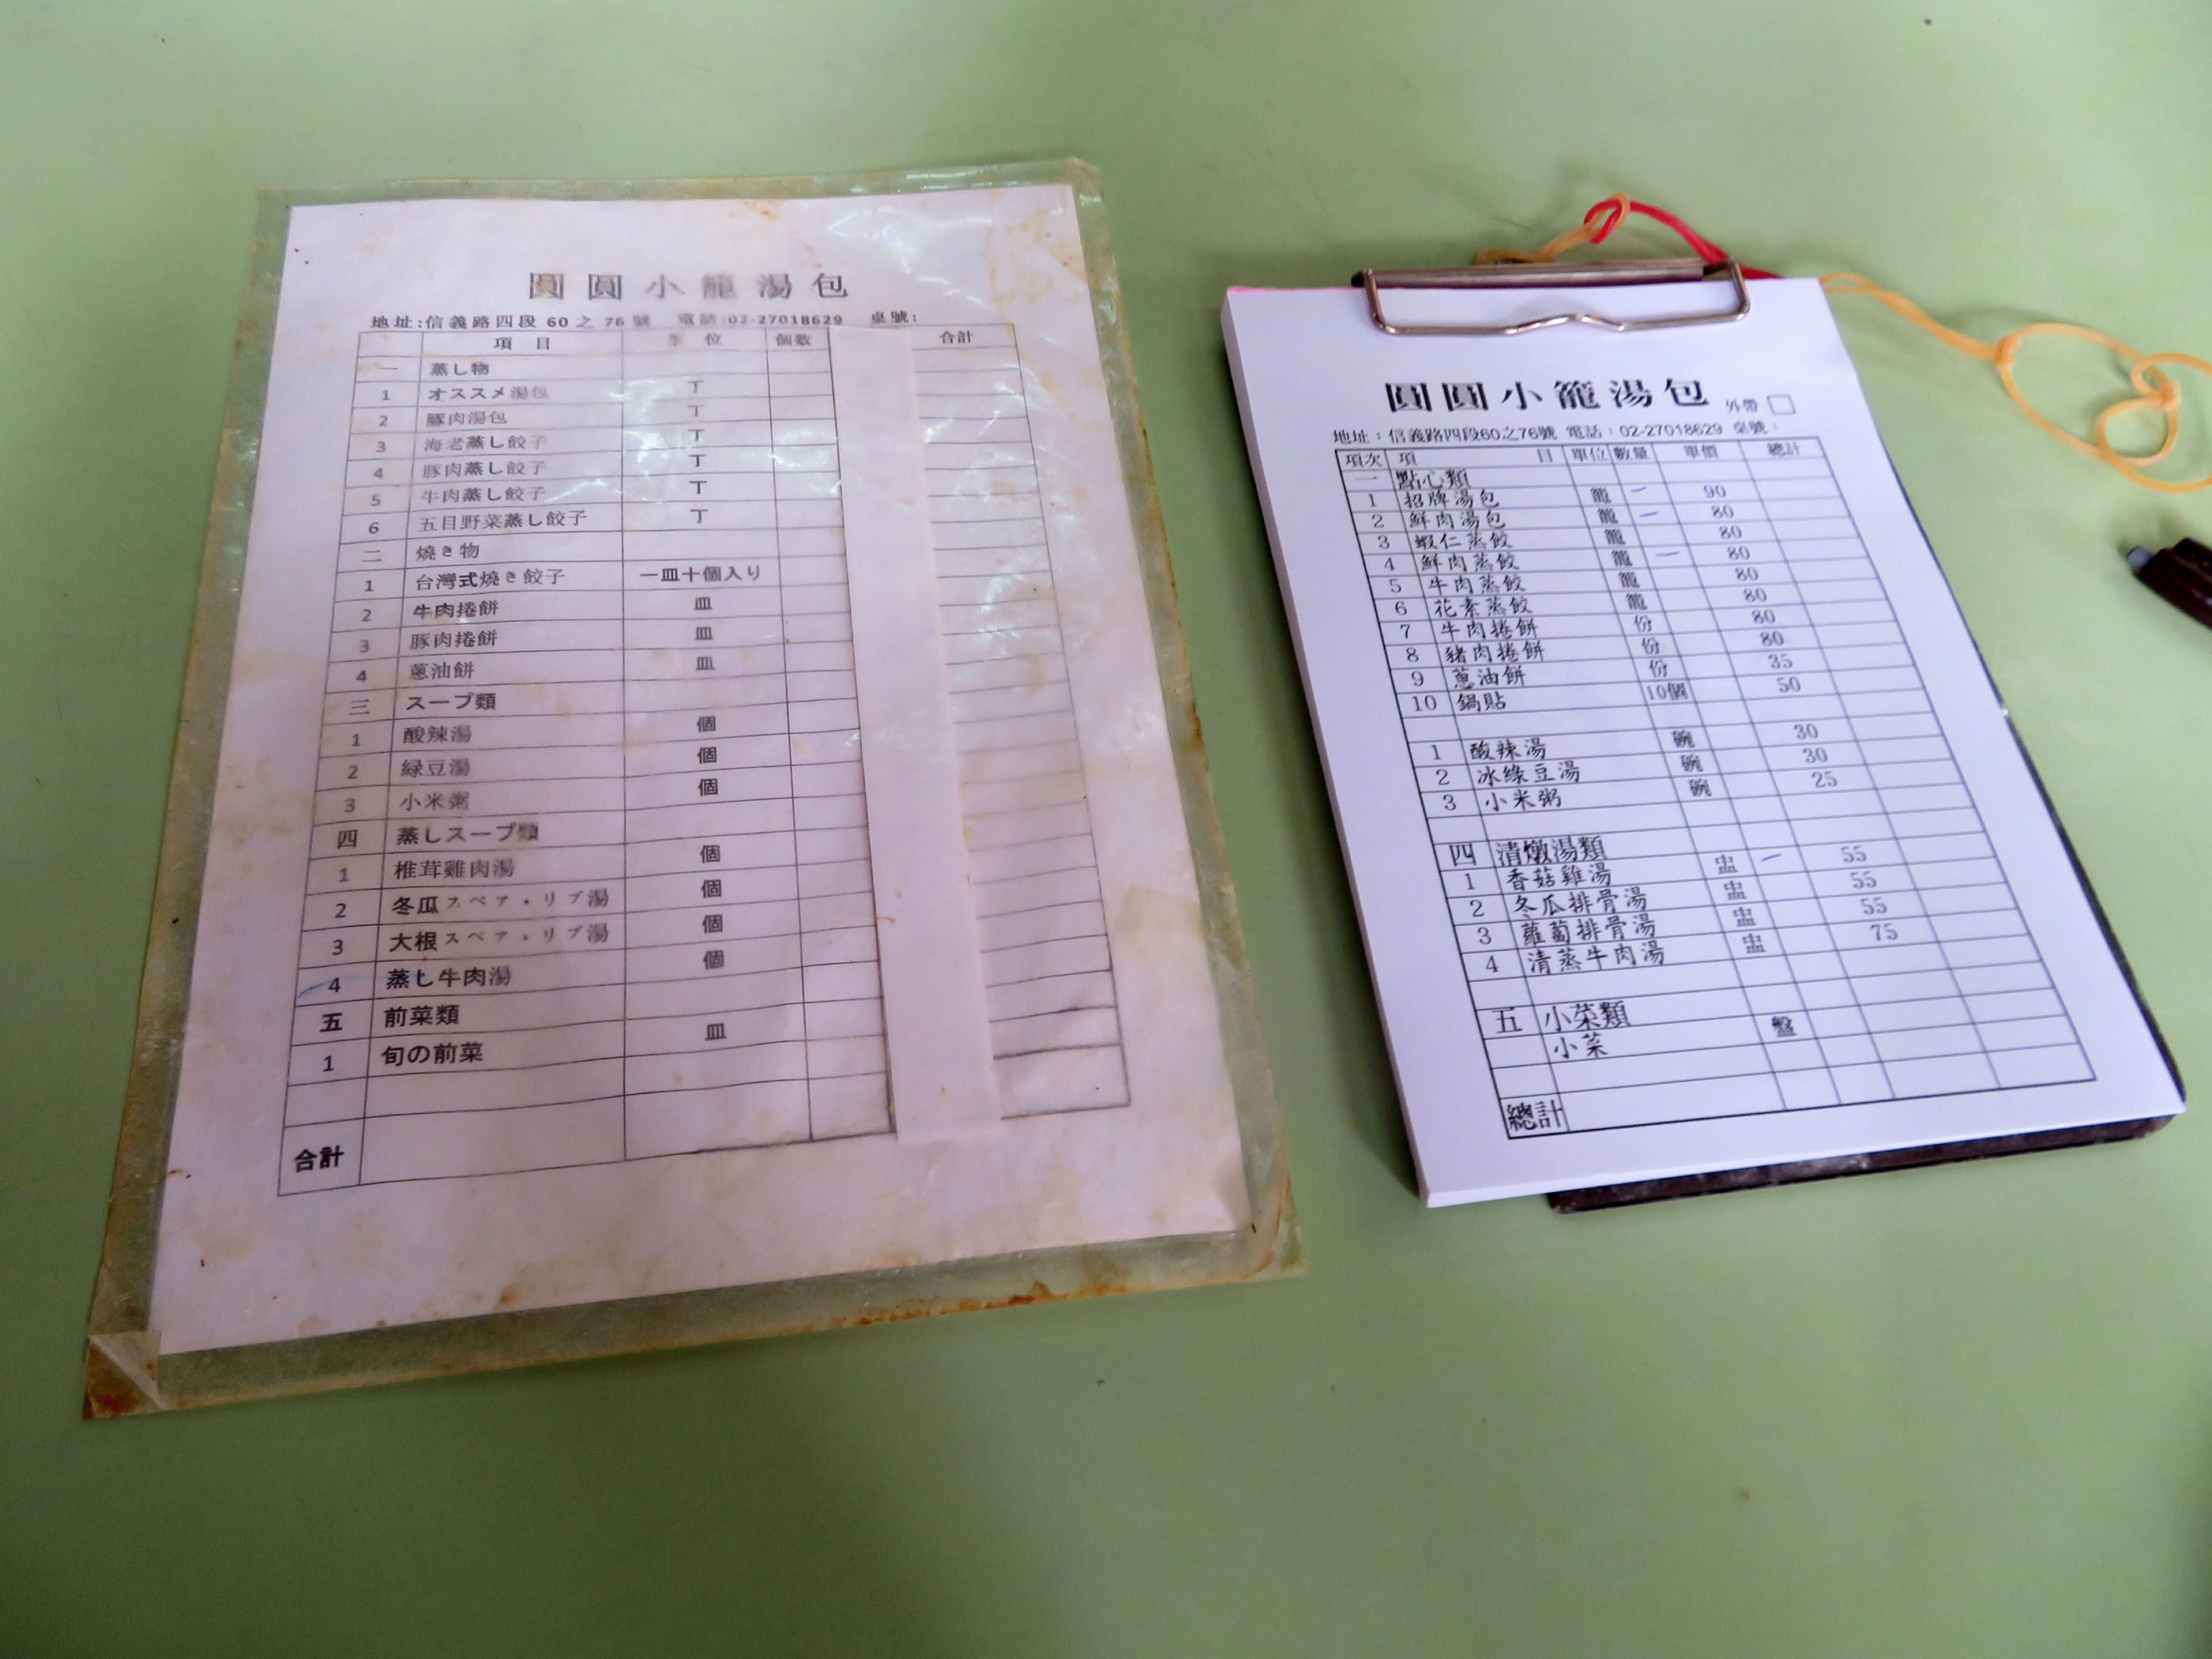 圓圓小籠湯包
地址:信義路四段 60 之 76 號 電話:02-27018629 桌號:
項目 單位 個數 合計
一 蒸し物
1 オススメ湯包 丁
2 豚肉湯包 丁
3 海老蒸し餃子 丁
4 豚肉蒸し餃子 丁
5 牛肉蒸し餃子 丁
6 五目野菜蒸し餃子 丁
二 焼き物
1 台灣式焼き餃子 一皿十個入り
2 牛肉捲餅 皿
3 豚肉捲餅 皿
4 蔥油餅 皿
三 スープ類
1 酸辣湯 個
2 緑豆湯 個
3 小米粥 個
四 蒸しスープ類
1 椎茸雞肉湯 個
2 冬瓜スペア・リブ湯 個
3 大根スペア・リブ湯 個
4 蒸し牛肉湯 個
五 前菜類
1 旬の前菜 皿
合計
圓圓小籠湯包 外帶
地址:信義路四段60之76號 電話:02-27018629 桌號:
項次 項目 單位 數量 單價 總計
一 點心類
1 招牌湯包 籠 90
2 鮮肉湯包 籠 80
3 蝦仁蒸餃 籠 80
4 鮮肉蒸餃 籠 80
5 牛肉蒸餃 籠 80
6 花素蒸餃 籠 80
7 牛肉捲餅 份 80
8 豬肉捲餅 份 80
9 蔥油餅 份 35
10 鍋貼 10個 50
1 酸辣湯 碗 30
2 冰綠豆湯 碗 30
3 小米粥 碗 25
四 清燉湯類
1 香菇雞湯 盅 55
2 冬瓜排骨湯 盅 55
3 蘿蔔排骨湯 盅 55
4 清蒸牛肉湯 盅 75
五 小菜類
小菜 盤
總計